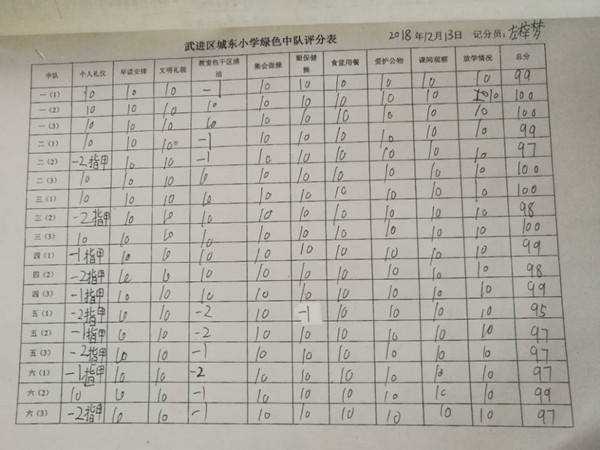 武进区城东小学绿色中队评分表 2018年12月13日 记分员：左梓梦
中队 个人礼仪 早读安排 文明礼貌 教室包干区捅扫 集会做操 眼保健操 食堂用餐 爱护公物 课间观察 放学情况 总分
一（1） 10 10 10 -1 10 10 10 10 10 10 99
一（2） 10 10 10 10 10 10 10 10 10 10 100
一（3） 10 10 10 10 10 10 10 10 10 10 100
二（1） 10 10 10 -1 10 10 10 10 10 10 99
二（2） -2指甲 10 10 -1 10 10 10 10 10 10 97
二（3） 10 10 10 10 10 10 10 10 10 10 100
三（1） 10 10 10 10 10 10 10 10 10 10 100
三（2） -2指甲 10 10 10 10 10 10 10 10 10 98
三（3） 10 10 10 10 10 10 10 10 10 10 100
四（1） -1指甲 10 10 10 10 10 10 10 10 10 99
四（2） -2指甲 10 10 10 10 10 10 10 10 10 98
四（3） -1指甲 10 10 10 10 10 10 10 10 10 99
五（1） -2指甲 10 10 -2 10 -1 10 10 10 10 95
五（2） -1指甲 10 10 -2 10 10 10 10 10 10 97
五（3） -2指甲 10 10 -1 10 10 10 10 10 10 97
六（1） -1指甲 10 10 -2 10 10 10 10 10 10 97
六（2） 10 10 10 -1 10 10 10 10 10 10 99
六（3） -2指甲 10 10 -1 10 10 10 10 10 10 97